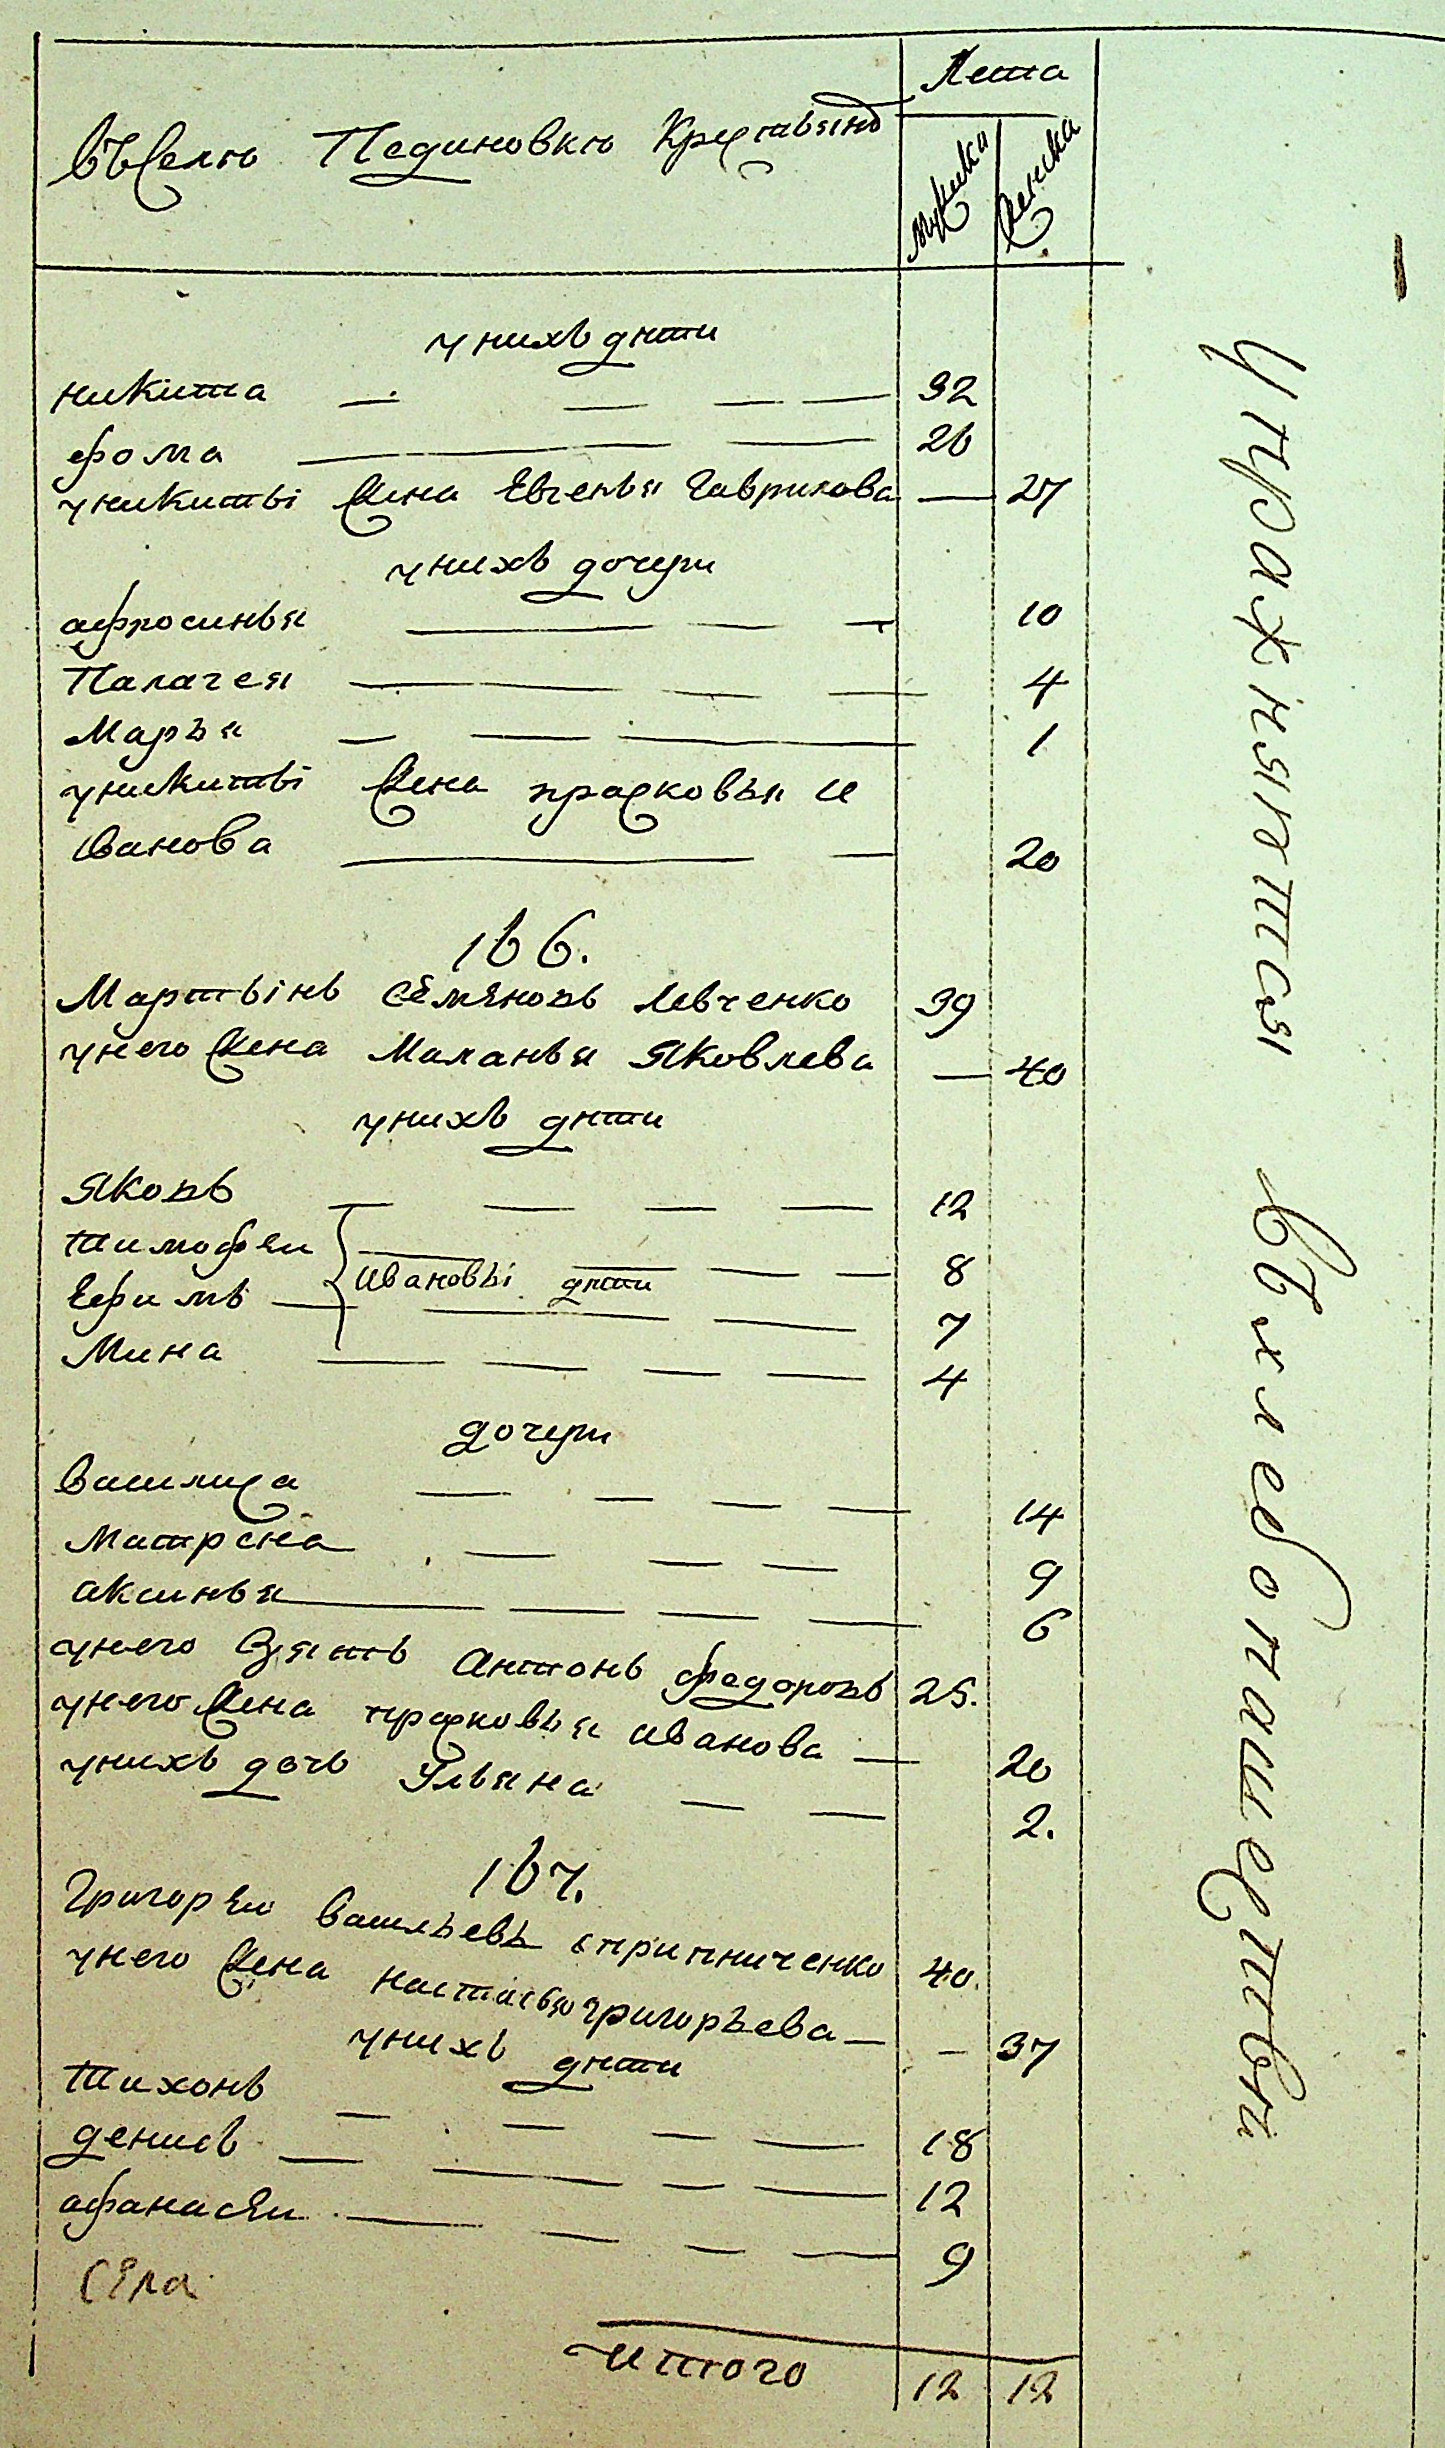 Лета
въселѣ Пединовкѣ Крестьянъ
мужеска
женска
унихъ дѣти
никита 32
фома 26
уникиты жена Евгенья Гаврилова 27
унихъ дочери
афросинья 10
Палагея 4
Марья 1
уникиты жена прасковья и
Иванова 20
166.
Мартынъ семяновъ левченко 39
унего жена Маланья Яковлева 40
унихъ дѣти
Яковъ 12
тимофеи 8
Ивановы дѣти
Ефимъ 7
Мина 4
дочери
василиса 14
Матрена 9
аксинья 6
унего зять антонъ федоровъ 25.
унего жена прасковья иванова 20
унихъ дочь Ульяна 2.
167.
Григореи васильевъ скрипниченко 40.
унего жена настасья григорьева 37
унихъ дѣти
тихонъ 18
денисъ 12
афанасеи 9
села
итого 12 12
упражняются въ хлебопашествѣ